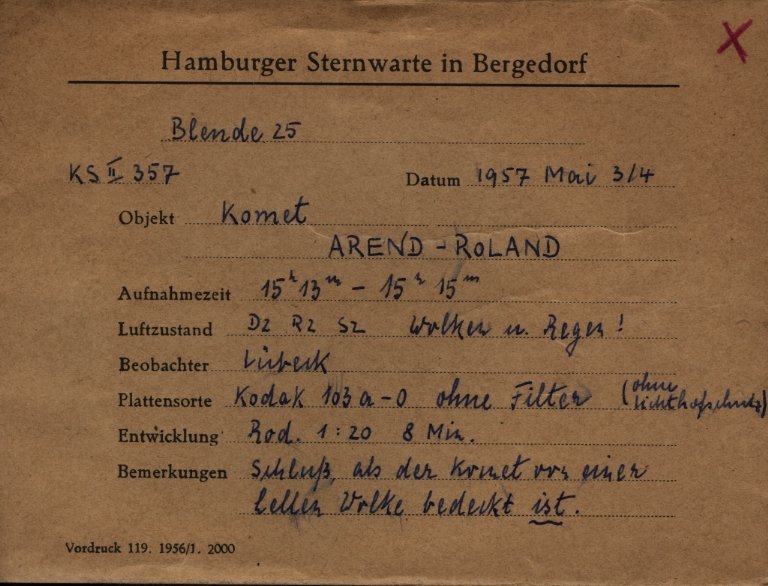 X
Hamburger Sternwarte in Bergedorf
Blende 25
KS II 357 Datum 1957 Mai 3/4
Objekt Komet
AREND-ROLAND
Aufnahmezeit 15h 13m - 15h 15m
Luftzustand D2 R2 S2 Wolken u. Regen!
Beobachter Lübeck
Plattensorte Kodak 103a-O ohne Filter (ohne Lichthofschutz)
Entwicklung Rod. 1:20 8 Min.
Bemerkungen Schluß, als der Komet von einer
hellen Wolke bedeckt ist.
Vordruck 119. 1956/1. 2000